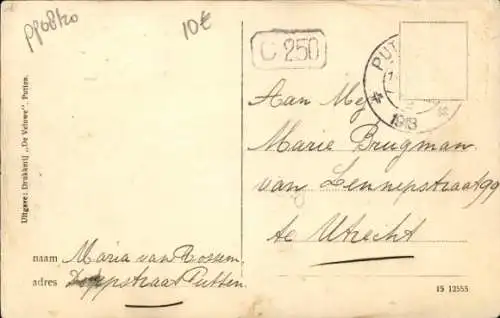 pp08420
10€
C 250
PUT
1913
Aan Mej
Marie Brugman
van Lennepstraat 99
te Utrecht
Uitgave: Drukkerij „De Veluwe", Putten.
naam Maria van Rossem.
adres Dorpstraat Putten.
15 12555